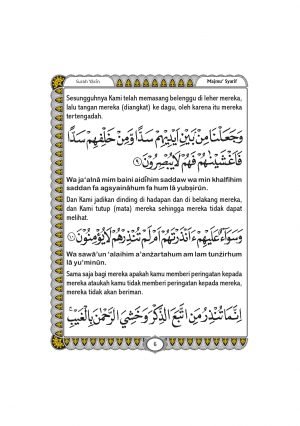 Surah Yâsîn
Majmu' Syarif
Sesungguhnya Kami telah memasang belenggu di leher mereka,
lalu tangan mereka (diangkat) ke dagu, oleh karena itu mereka
tertengadah.
وَجَعَلْنَا مِنْ بَيْنِ اَيْدِيْهِمْ سَدًّا وَّمِنْ خَلْفِهِمْ سَدًّا
فَاَغْشَيْنٰهُمْ فَهُمْ لَا يُبْصِرُوْنَ ۝٩
Wa ja'alnâ mim baini aidîhim saddaw wa min khalfihim
saddan fa agsyainâhum fa hum lâ yubṣirûn.
Dan Kami jadikan dinding di hadapan dan di belakang mereka,
dan Kami tutup (mata) mereka sehingga mereka tidak dapat
melihat.
وَسَوَآءٌ عَلَيْهِمْ ءَاَنْذَرْتَهُمْ اَمْ لَمْ تُنْذِرْهُمْ لَا يُؤْمِنُوْنَ ۝١٠
Wa sawâ'un 'alaihim a'anżartahum am lam tunżirhum
lâ yu'minûn.
Sama saja bagi mereka apakah kamu memberi peringatan kepada
mereka ataukah kamu tidak memberi peringatan kepada mereka,
mereka tidak akan beriman.
اِنَّمَا تُنْذِرُ مَنِ اتَّبَعَ الذِّكْرَ وَخَشِيَ الرَّحْمٰنَ بِالْغَيْبِۚ
6